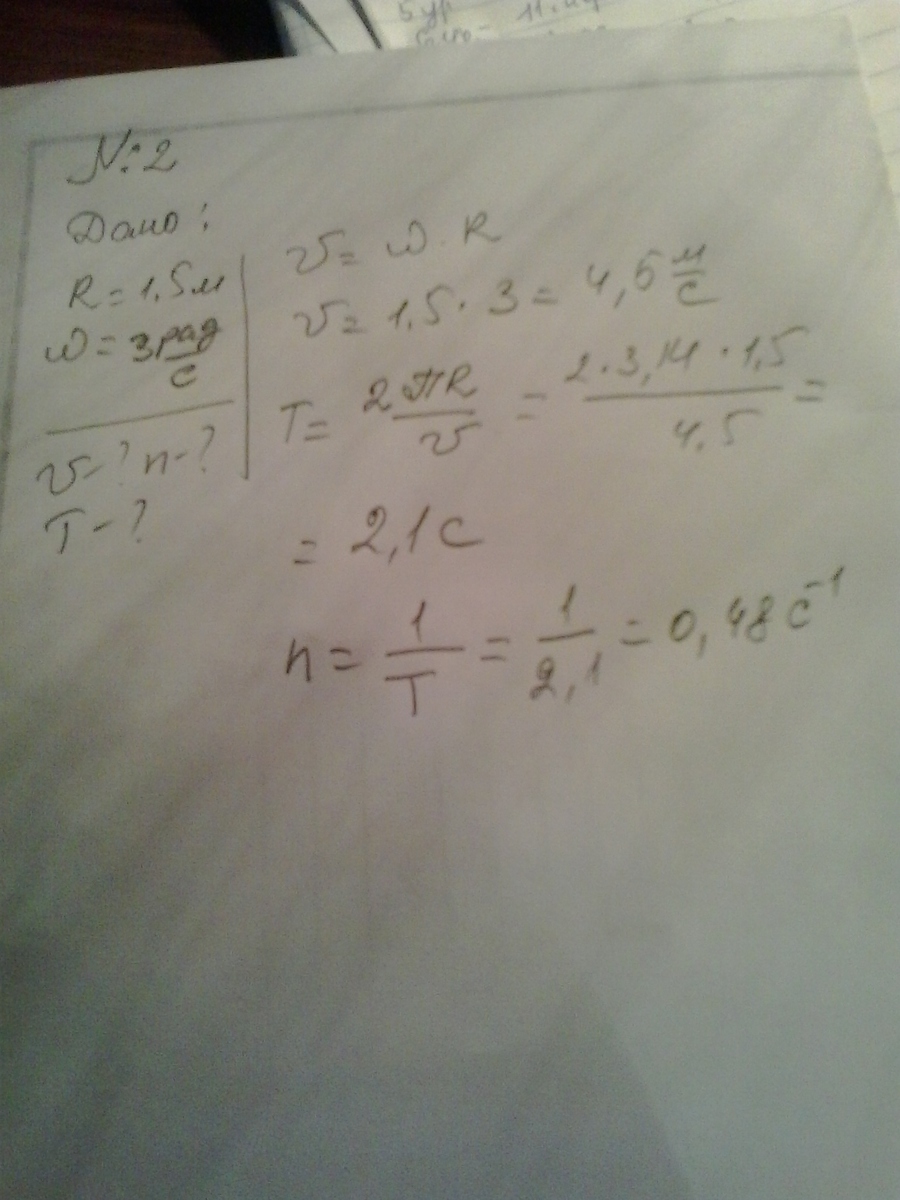 5 ур
11.
N:2
Дано:
R = 1,5м
ω = 3 рад/с
v-? n-?
T-?
v = ω · R
v = 1,5 · 3 = 4,5 м/с
T = 2πR/v = 2·3,14·1,5/4.5 =
= 2,1 с
n = 1/T = 1/2,1 = 0,48 с⁻¹